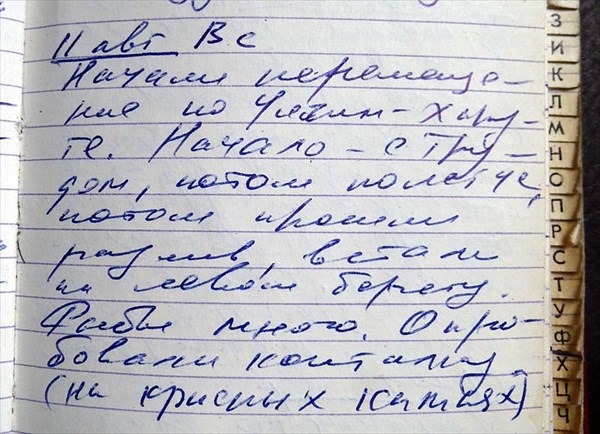 11 авг Вс
Начали перемеще-
ние по Улахан-Хару-
те. Начало - с тру-
дом, потом полегче,
потом прошли
разлив, встали
на левом берегу.
Рыбы много. Опро-
бовали коптилку
(на красных камнях)
З
И
К
Л
М
Н
О
П
Р
С
Т
У
Ф
Х
Ц
Ч